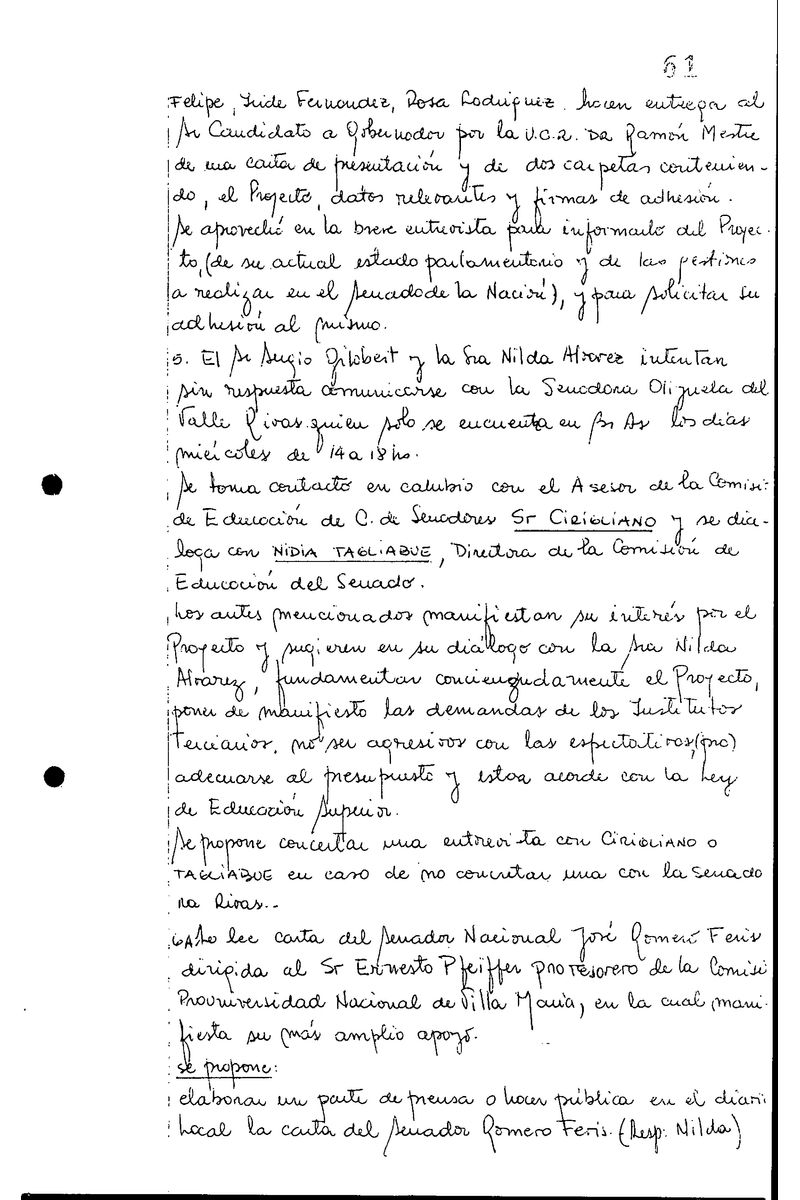 61
Felipe, Iride Fernandez, Rosa Rodriguez hacen entrega al
Sr Candidato a Gobernador por la U.C.R. DR Ramón Mestre
de una carta de presentación y de dos carpetas contenien-
do, el Proyecto, datos relevantes y firmas de adhesión.
Se aprovechó en la breve entrevista para informarlo del Proyec-
to, (de su actual estado parlamentario y de las gestiones
a realizar en el Senado de la Nación), y para solicitar su
adhesión al mismo.
5. El Sr Sergio Gilobert y la Sra Nilda Alvarez intentan
sin respuesta comunicarse con la Senadora Olijuela del
Valle Rivas quien solo se encuentra en Bs As los días
miércoles de 14 a 18 hs.
Se toma contacto en cambio con el Asesor de la Comisi
de Educación de C. de Senadores Sr CIRIGLIANO y se dia-
loga con NIDIA TAGLIABUE, Directora de la Comisión de
Educación del Senado.
Los antes mencionados manifiestan su interés por el
Proyecto y sugieren en su diálogo con la Sra Nilda
Alvarez, fundamentar concienzudamente el Proyecto,
poner de manifiesto las demandas de los Institutos
terciarios, no ser agresivos con las espectativas,
adecuarse al presupuesto y estar acorde con la Ley
de Educación Superior.
Se propone concertar una entrevista con CIRIGLIANO o
TAGLIABUE en caso de no concretar una con la Senado
ra Rivas..
6 Se lee carta del Senador Nacional José Romero Feris
dirigida al Sr Ernesto Pfeiffer protesorero de la Comisi
Prouniversidad Nacional de Villa María, en la cual mani-
fiesta su más amplio apoyo.
se propone:
elaborar un parte de prensa o hacer pública en el diari
local la carta del Senador Romero Feris. (Resp: Nilda)